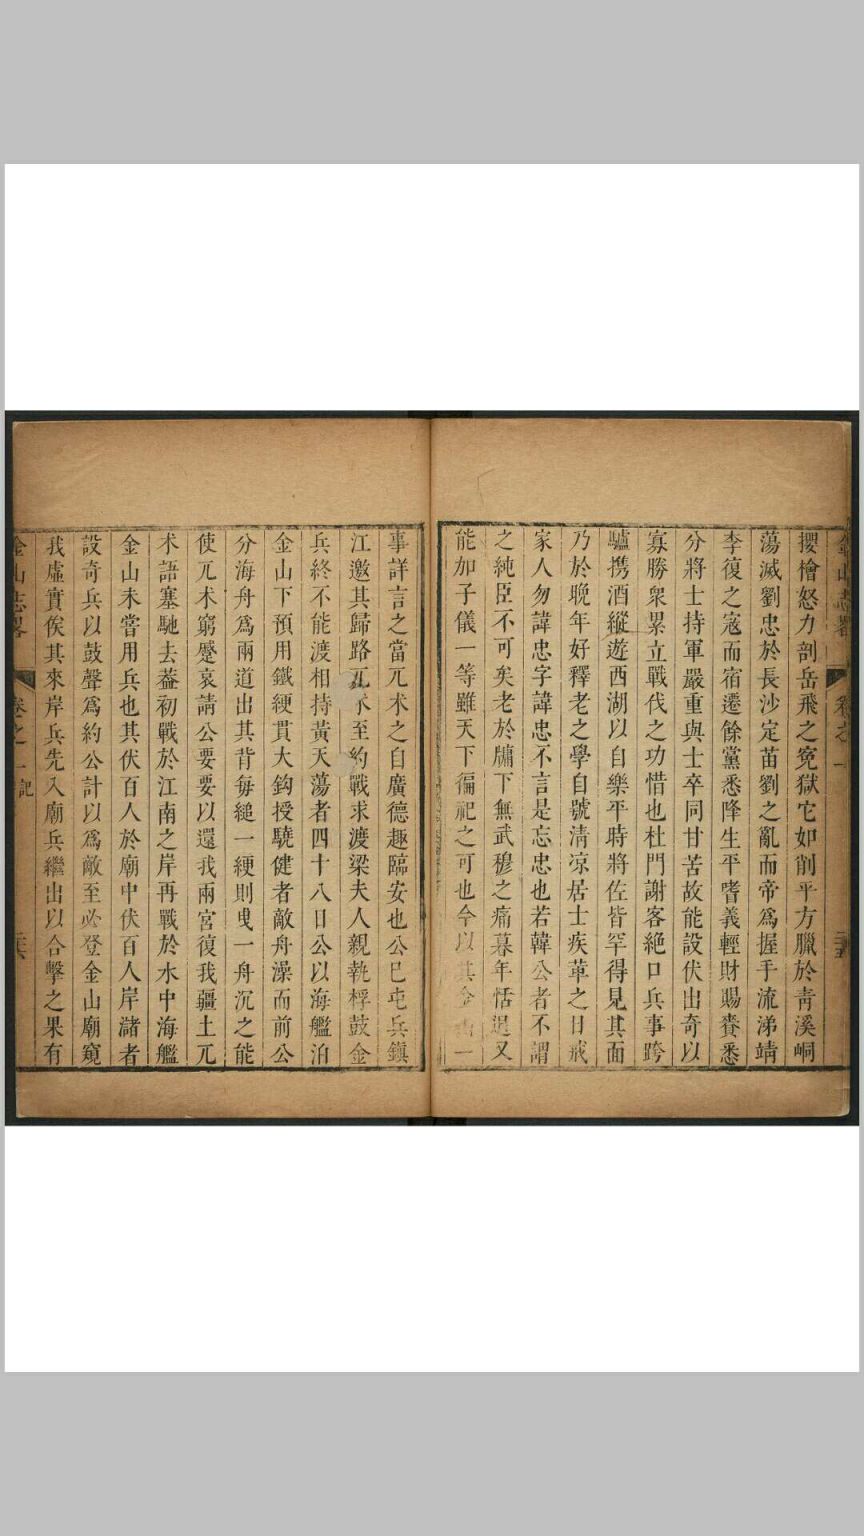 金山志畧 卷之一
攖檜怒力剖岳飛之寃獄它如削平方臘於靑溪峒
蕩滅劉忠於長沙定苗劉之亂而帝爲握手流涕靖
李復之寇而宿遷餘黨悉降生平嗜義輕財賜賚悉
分將士持軍嚴重與士卒同甘苦故能設伏出奇以
寡勝衆累立戰伐之功惜也杜門謝客絶口兵事跨
驢携酒縱遊西湖以自樂平時將佐皆罕得見其面
乃於晚年好釋老之學自號淸凉居士疾革之日戒
家人勿諱忠字諱忠不言是忘忠也若韓公者不謂
之純臣不可矣老於牖下無武穆之痛暮年恬退又
能加子儀一等雖天下徧祀之可也今以其金山一
事詳言之當兀朮之自廣德趣臨安也公已屯兵鎭
江邀其歸路兀朮至約戰求渡梁夫人親執桴鼓金
兵終不能渡相持黃天蕩者四十八日公以海艦泊
金山下預用鐵綆貫大鈎授驍健者敵舟澡而前公
分海舟爲兩道出其背每縋一綆則曳一舟沉之能
使兀朮窮蹙哀請公要要以還我兩宮復我疆土兀
朮語塞馳去葢初戰於江南之岸再戰於水中海艦
金山未嘗用兵也其伏百人於廟中伏百人岸瀦者
設奇兵以鼓聲爲約公計以爲敵至必登金山廟窺
我虛實俟其來岸兵先入廟兵繼出以合擊之果有
金山志畧 卷之一 記 二六